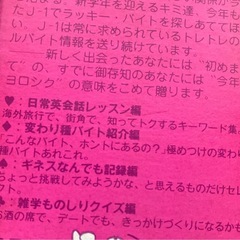 新学年を迎えるキミ達、今年も
たJ-1でラッキー・バイトを探しあてては
い、J-1は常に現場のトレトレの
ルバイト情報を送り続けています。
――新しく出会ったあなたには"初めま
て"の、すでに御存知のあなたには"今年
ヨロシク"の意味をこめて贈ります。
♥:日常英会話レッスン編
海外旅行で、街角で、知ってトクするキーワード集
◆:変わり種バイト紹介編
「こんなバイト、ホントにあるの?」極めつけの変わり
種バイトあれこれ。
♠:ギネスなんでも記録編
ちょっと挑戦してみようかな、と思えるものだけセレ
クト。
♣:雑学ものしりクイズ編
お酒の席で、デートでも、きっかけづくりになるかも